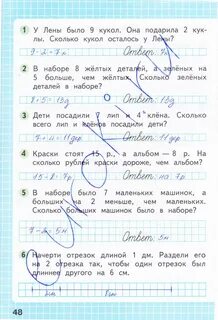 1 У Лены было 9 кукол. Она подарила 2 кук-
лы. Сколько кукол осталось у Лены?
9-2=7к Ответ: 7к
2 В наборе 8 жёлтых деталей, а зелёных на
5 больше, чем жёлтых. Сколько зелёных
деталей в наборе?
8+5=13д Ответ: 13д
3 Дети посадили 7 лип и 4 клёна. Сколько
всего лип и клёнов посадили дети?
7+4=11дер Ответ: 11дер
4 Краски стоят 15 р., а альбом — 8 р. На
сколько рублей краски дороже, чем альбом?
15-8=7р Ответ: на 7р.
5 В наборе было 7 маленьких машинок, а
больших на 2 меньше, чем маленьких.
Сколько больших машинок было в наборе?
7-2=5м Ответ: 5м
6 Начерти отрезок длиной 1 дм. Раздели его
на 2 отрезка так, чтобы один отрезок был
длиннее другого на 6 см.
48